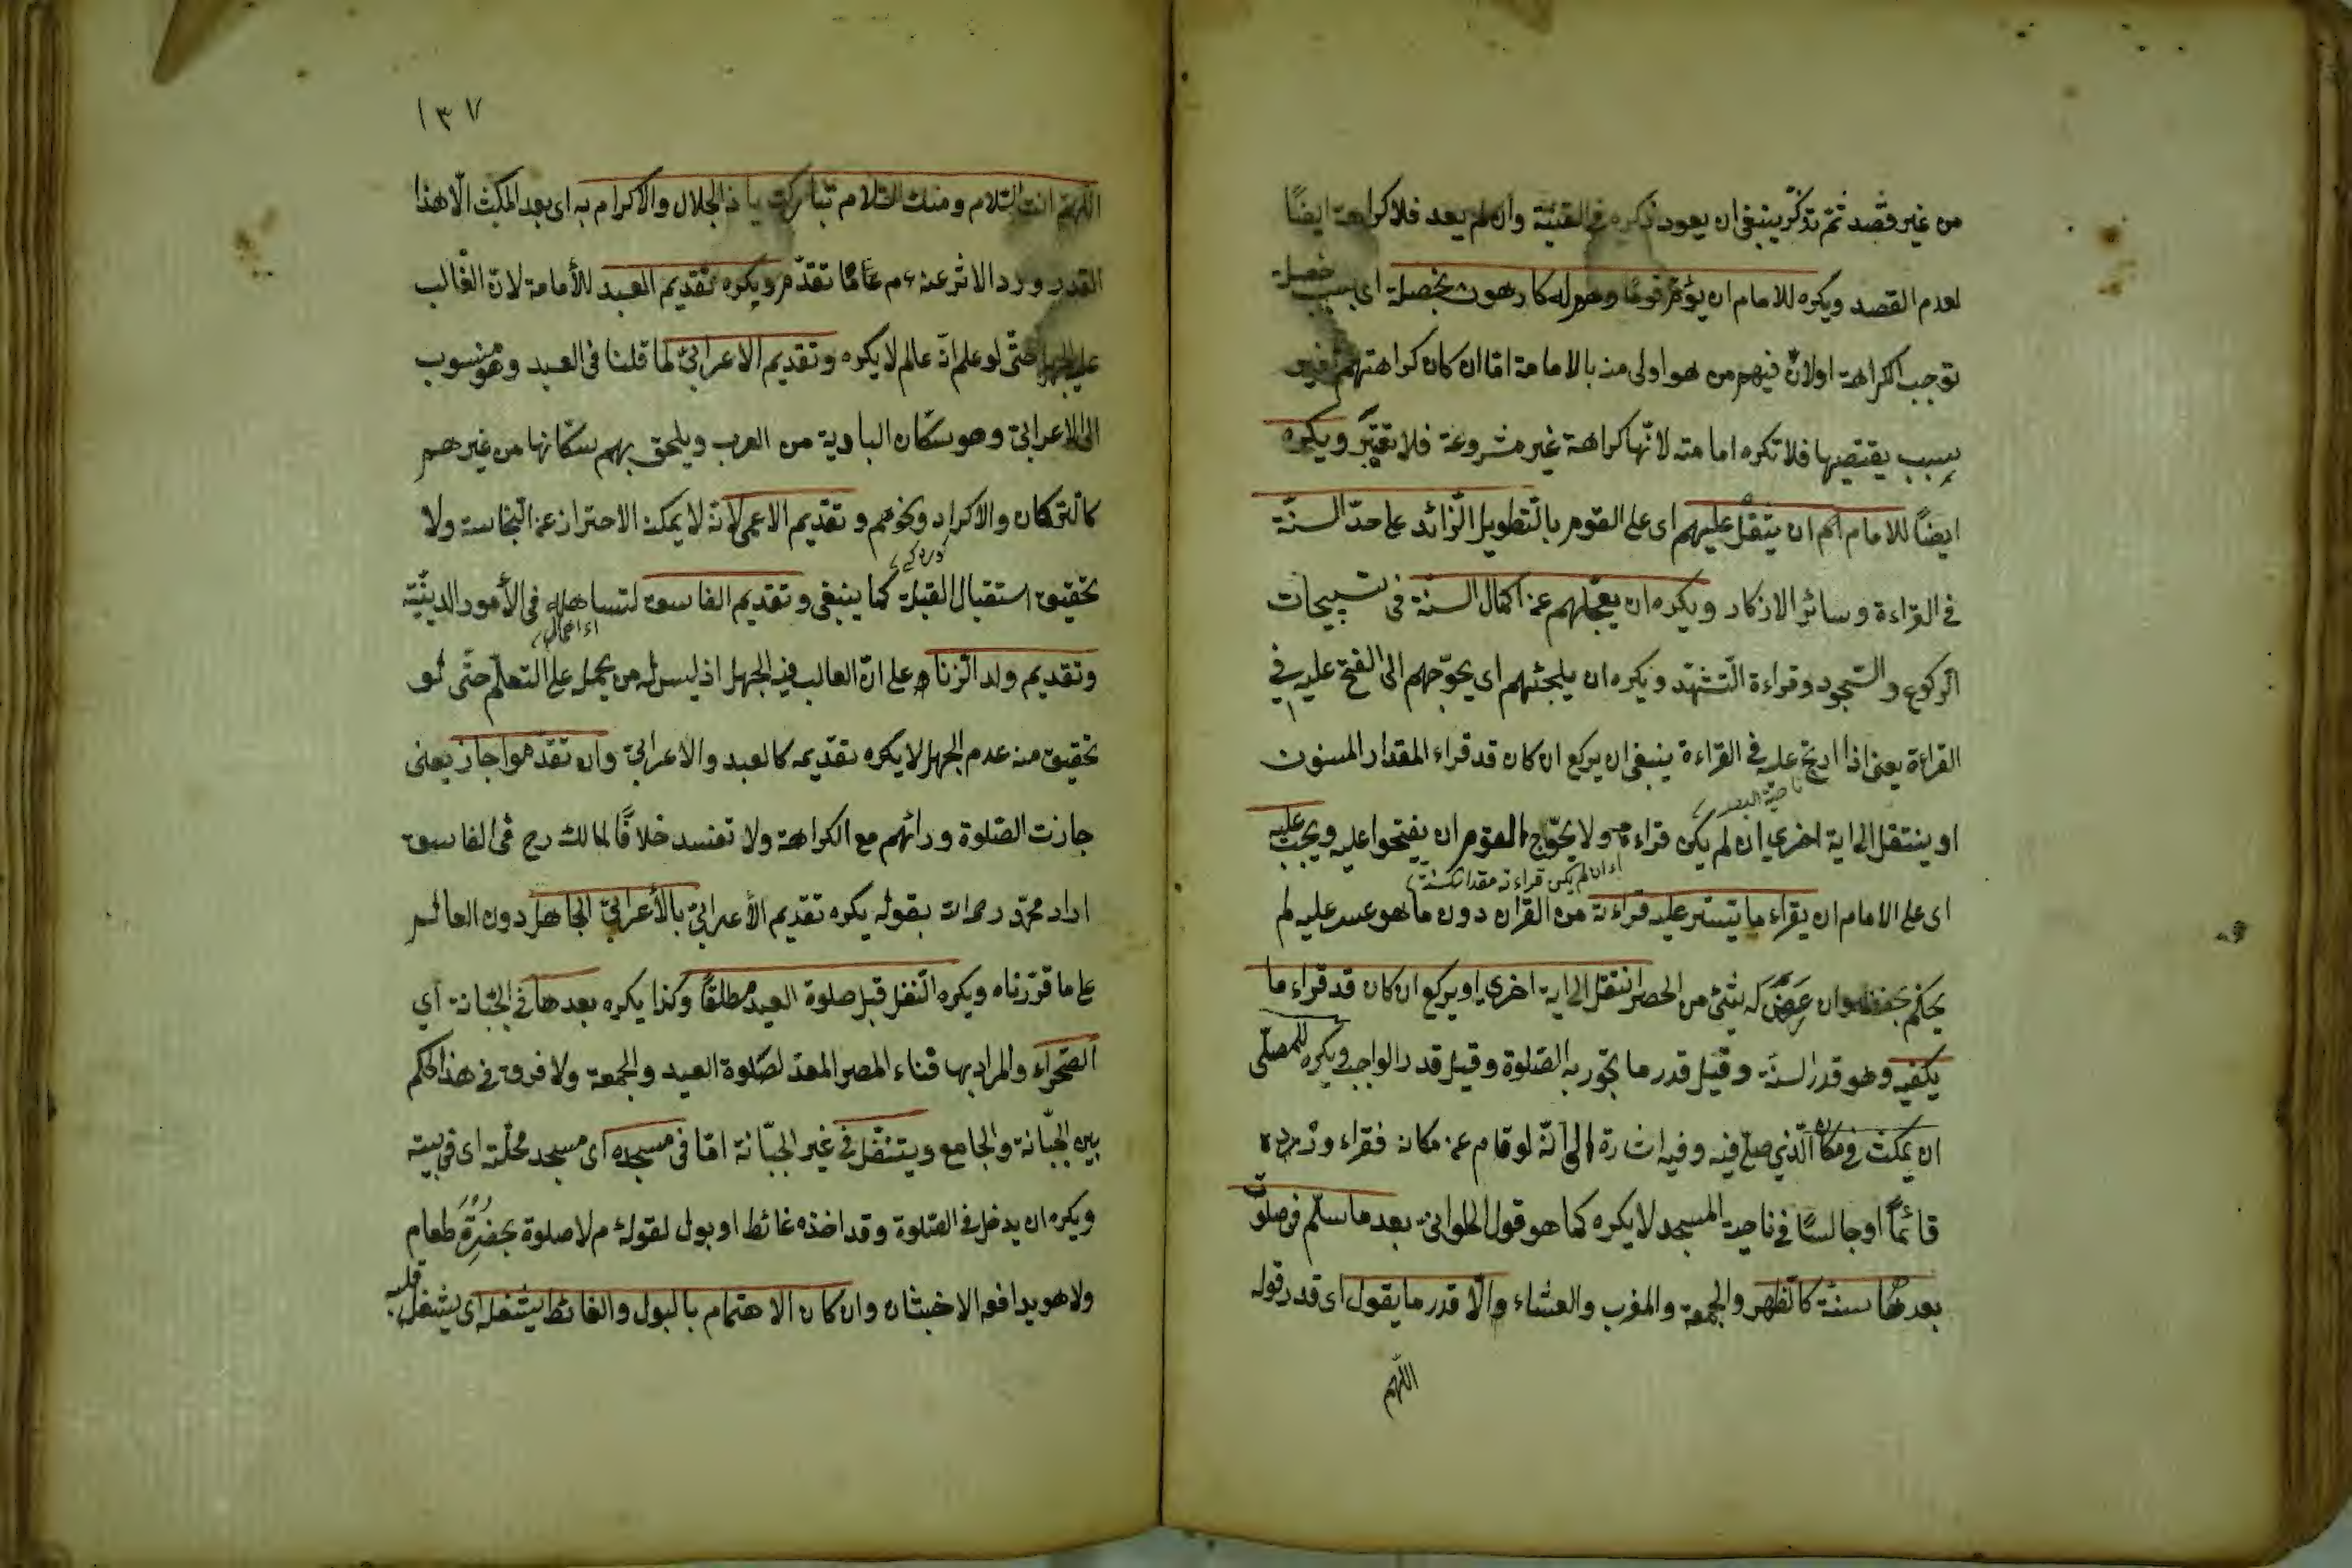 من غير قصد ثمّ تذكّر ينبغى ان يعود ذكره فى القنية وان لم يعد فلا كراهة ايضًا
لعدم القصد ويكره للامام ان يؤمّ قومًا وهم له كارهون بخصلة اى بسبب خصلة
توجب الكراهة اولانّ فيهم من هو اولى منه بالامامة امّا ان كان كراهتهم فيه
بسبب يقتضيها فلا تكره امامته لانّها كراهة غير مشروعة فلا تعتبر ويكره
ايضًا للامام ان يثقل عليهم اى على القوم بالتّطويل الزّائد على حدّ السنّة
فى القراءة وسائر الاذكار ويكره ان يعجّلهم عن اكمال السنّة فى تسبيحات
الركوع والسّجود وقراءة التّشهّد ويكره ان يلجئهم اى يحوّجهم الى الفتح عليه فى
القراءة يعنى اذا ارتج عليه فى القراءة ينبغى ان يركع ان كان قد قراء المقدار المسنون
او ينتقل الى اية اخرى ان لم يكن قراءه ولا يحوّج القوم ان يفتحوا عليه ويجب عليه
اى ان لم يكن قراءته مقدار السنة
اى على الامام ان يقراء ما يتيسّر عليه قراءته من القرآن دون ما هو عسر عليه لم
يحكم بحفظه وان عرض له شئ من الحصر انتقل الى اية اخرى او يركع ان كان قد قراء ما
يكفيه وهو قدر السنّة وقيل قدر ما تجوز به الصّلوة وقيل قدر الواجب ويكره للمصلّى
ان يمكث فى مكانه الّذى صلّى فيه وفيه اشارة الى انّه لو قام عن مكانه فقراء ورده
قائمًا او جالسًا فى ناحية المسجد لا يكره كما هو قول الحلوانىّ بعد ما سلّم فى صلوة
بعدها سنّة كالظهر والجمعة والمغرب والعشاء والّا قدر ما يقول اى قدر قوله
اللّهم
١٣٧
اللّهمّ انت السّلام ومنك السّلام تباركت يا ذا الجلال والاكرام به اى بعد المكث الّا هذا
القدر ورد الاثر عنه ءم على ما تقدّم ويكره تقديم العبد للأمامة لانّ الغالب
عليه الجهل حتّى لو علم انّه عالم لا يكره وتقديم الاعرابىّ لما قلنا فى العبد وهو منسوب
الى الاعرابىّ وهو سكّان البادية من العرب ويلحق بهم سكّانها من غيرهم
كالتركمان والاكراد ونحوهم وتقديم الاعمى لانّه لا يمكنه الاحتراز عن النّجاسة ولا
تحقيق استقبال القبلة كما ينبغى وتقديم الفاسق لتساهله فى الأمور الدينيّة
وتقديم ولد الزّناء على انّ الغالب فيه الجهل اذ ليس له من يحمله على التعلّم حتّى لو
تحقيق منه عدم الجهل لا يكره تقديمه كالعبد والاعرابىّ وان تقدّموا جاز يعنى
جازت الصّلوة ورائهم مع الكراهة ولا تفسد خلافًا لمالك رح فى الفاسق
اراد محمّد رحمه الله بقوله يكره تقديم الأعرابىّ بالأعرابىّ الجاهل دون العالم
على ما قرّرناه ويكره التّنفل قبل صلوة العيد مطلقًا وكذا يكره بعدها فى الجبّانة أى
الصّحراء والمراد بها فناء المصر المعدّ لصلوة العيد والجمعة ولا فرق فى هذا الحكم
بين الجبّانة والجامع ويتنفّل فى غير الجبّانة امّا فى مسجده اى مسجد محلّته اى فى بيته
ويكره ان يدخل فى الصّلوة وقد اخذه غائط او بول لقوله ءم لا صلوة بحضرة طعام
ولا هو يدافعه الاخبثان وان كان الاهتمام بالبول والغائط يشغله اى يشغل قلبه